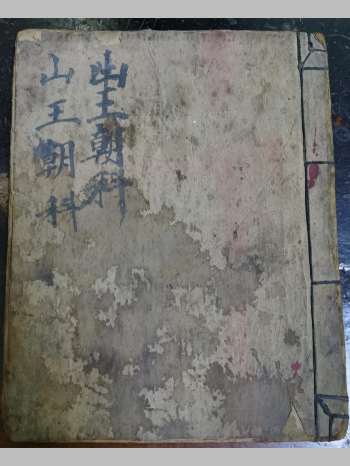 山王朝科
山王朝科